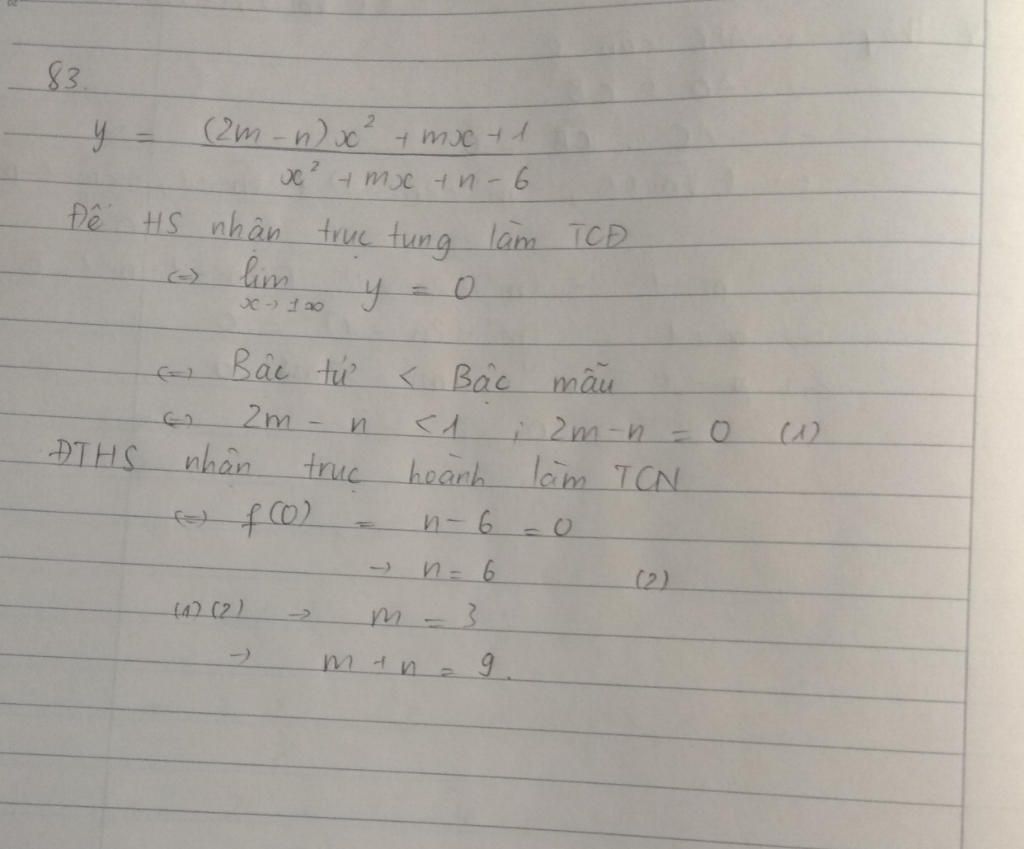 83.
y = \frac{(2m - n)x² + mx + 1}{x² + mx + n - 6}
Để HS nhận trục tung làm TCĐ
<=> lim_{x→±∞} y = 0
<=> Bậc tử < Bậc mẫu
<=> 2m - n < 1 ; 2m - n = 0 (1)
ĐTHS nhận trục hoành làm TCN
<=> f(0) = n - 6 = 0
→ n = 6 (2)
(1)(2) → m = 3
→ m + n = 9.